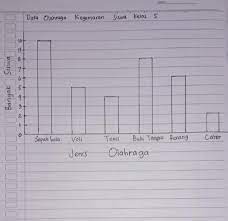 Data Olahraga Kegemaran Siswa Kelas 5
Banyak Siswa
Sepak bola Voli Tenis Bulu Tangkis Renang Catur
Jenis Olahraga